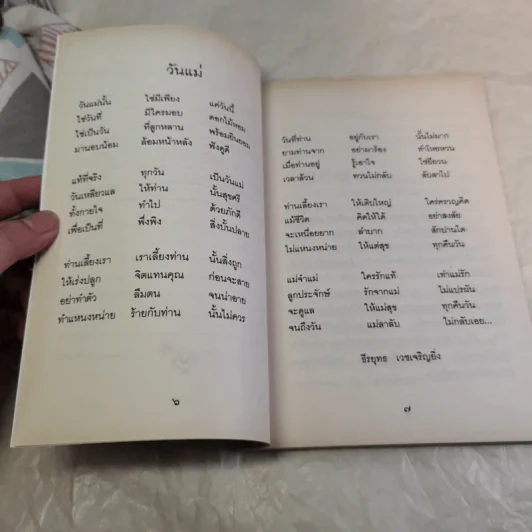 วันแม่
วันแม่นั้น ใช่มีเพียง แค่วันนี้
ใช่วันที่ มีใครมอบ ดอกไม้หอม
ใช่เป็นวัน ที่ลูกหลาน พร้อมยินยอม
มานอบน้อม ล้อมหน้าหลัง ฟังดูดี
แท้ที่จริง ทุกวัน เป็นวันแม่
วันเหลียวแล ให้ท่าน นั้นสุขศรี
ทั้งกายใจ ทำไป ด้วยภักดี
เพื่อเป็นที่ พึ่งพิง สิ่งบั้นปลาย
ท่านเลี้ยงเรา เราเลี้ยงท่าน นั้นสิ่งถูก
ให้เร่งปลูก จิตแทนคุณ ก่อนจะสาย
อย่าทำตัว ลืมตน จนน่าอาย
ทำแหนงหน่าย ร้ายกับท่าน นั้นไม่ควร
๖
วันที่ท่าน อยู่กับเรา นั้นไม่มาก
ยามท่านจาก อย่ามาร้อง ทำโหยหวน
เมื่อท่านอยู่ รู้เอาใจ ใช่ยียวน
เวลาล้วน หวนไม่กลับ ลับลาไป
ท่านเลี้ยงเรา ให้เติบใหญ่ ใคร่ครวญคิด
แม้ชีวิต คิดให้ได้ อย่าสงสัย
จะเหนื่อยยาก ลำบาก สักปานใด
ไม่แหนงหน่าย ให้แต่สุข ทุกคืนวัน
แม่จ๋าแม่ ใครรักแท้ เท่าแม่รัก
ลูกประจักษ์ รักจากแม่ ไม่แปรผัน
จะดูแล ให้แม่สุข ทุกคืนวัน
จนถึงวัน แม่ลาลับ ไม่กลับเอย...
ธีรยุทธ เวชเจริญยิ่ง
๗